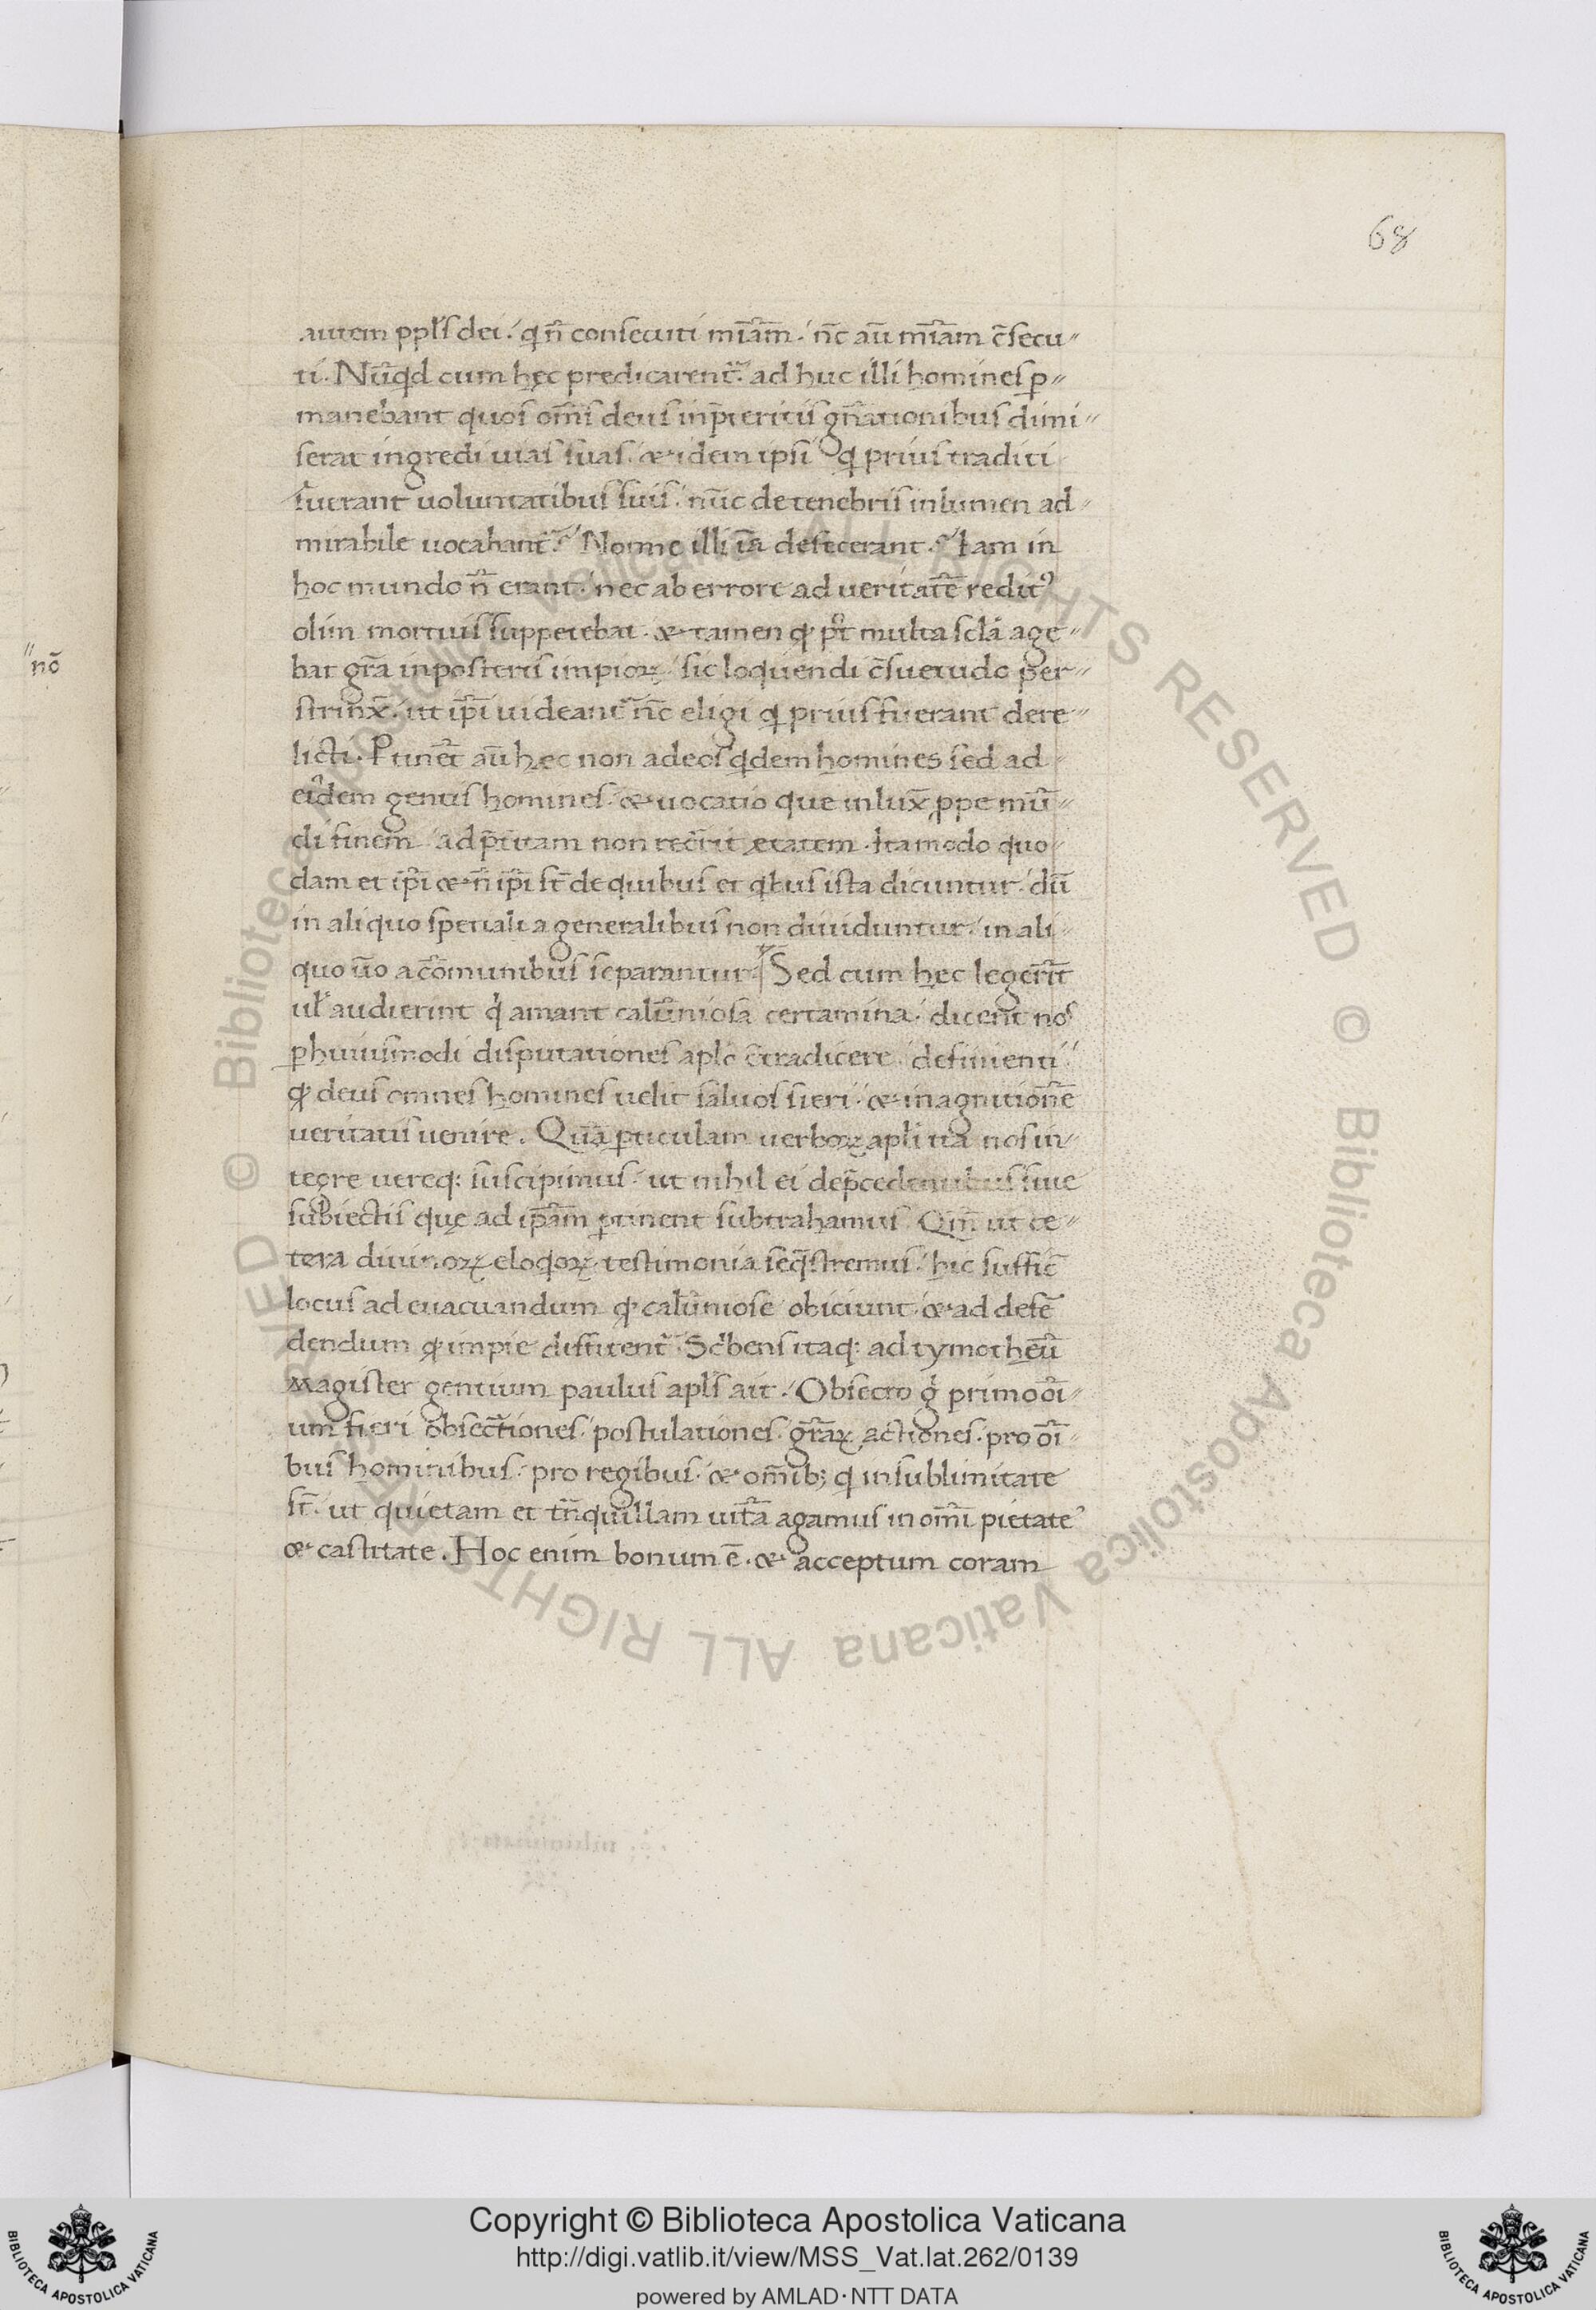 68
autem ppl̃s dei. q nõ consecuti mĩam. nc̃ aũ mĩam c̃secu-
ti. Nũqd cum hęc predicarent̃. ad huc illi homines p-
manebant quos om̃s deus inp̃teritis gñationibus dimi-
serat ingredi uias suas. & idem ipsi q prius traditi
fuerant uoluntatibus suis. nũc de tenebris inlumen ad-
mirabile uocabant̃. Nonne illi iã defecerant. Iam in
hoc mundo ñ erant. nec ab errore ad ueritatẽ redit9
olim mortuis suppetebat. & tamen q pt̃ multa scl̃a age-
bat grã inposteris impioꝝ. sic loquendi c̃suetudo per-
strinx̃. ut ip̃i uideant̃ nc̃ eligi q prius fuerant dere-
licti. Ptinet̃ aũ hec non adeos qdem homines sed ad
eiđem gentis homines. & uocatio que inlux̃ ppe mũ-
di finem adp̃titam non rec̃rit ętatem. Ita modo quo-
dam et ip̃i & ñ ip̃i st̃ de quibus et qbus ista dicuntur. dũ
in aliquo speciali a generalibus non diuiduntur. in ali-
quo ũo a cõmunibus separantur. Sed cum hęc legerĩt
ul̃ audierint q amant calũniosa certamina. dicent nos
phuiusmodi disputationes aplo c̃tradicere definienti
q deus omnes homines uelit saluos fieri. & inagnitionẽ
ueritatis uenire. Quã pticulam uerboꝝ apl̃i ita nos in-
tegre uereq: suscipimus. ut nihil ei dep̃cedentibus siue
subiectis quę ad ip̃am ptinent subtrahamus. Qm̃ ut ce-
tera diuinoꝝ eloqoꝝ testimonia seq̃stremus. hic suffic̃
locus ad euacuandum q calũniose obiciunt. & ad defẽ
dendum q impie diffitent̃. Scbens itaq: ad tymotheũ
Magister gentium paulus apl̃s ait. Obsecro g primo oĩ-
um fieri obsect̃iones. postulationes. grãꝝ actiones. pro oĩ-
bus hominibus. pro regibus. & om̃ib; q insublimitate
st̃. ut quietam et tñquillam uitã agamus in om̃i pietate
& castitate. Hoc enim bonum ẽ. & acceptum coram
nõ
Copyright © Biblioteca Apostolica Vaticana
http://digi.vatlib.it/view/MSS_Vat.lat.262/0139
powered by AMLAD·NTT DATA
BIBLIOTECA APOSTOLICA VATICANA
BIBLIOTECA APOSTOLICA VATICANA
© Biblioteca Apostolica Vaticana ALL RIGHTS RESERVED © Biblioteca Apostolica Vaticana ALL RIGHTS RESERVED